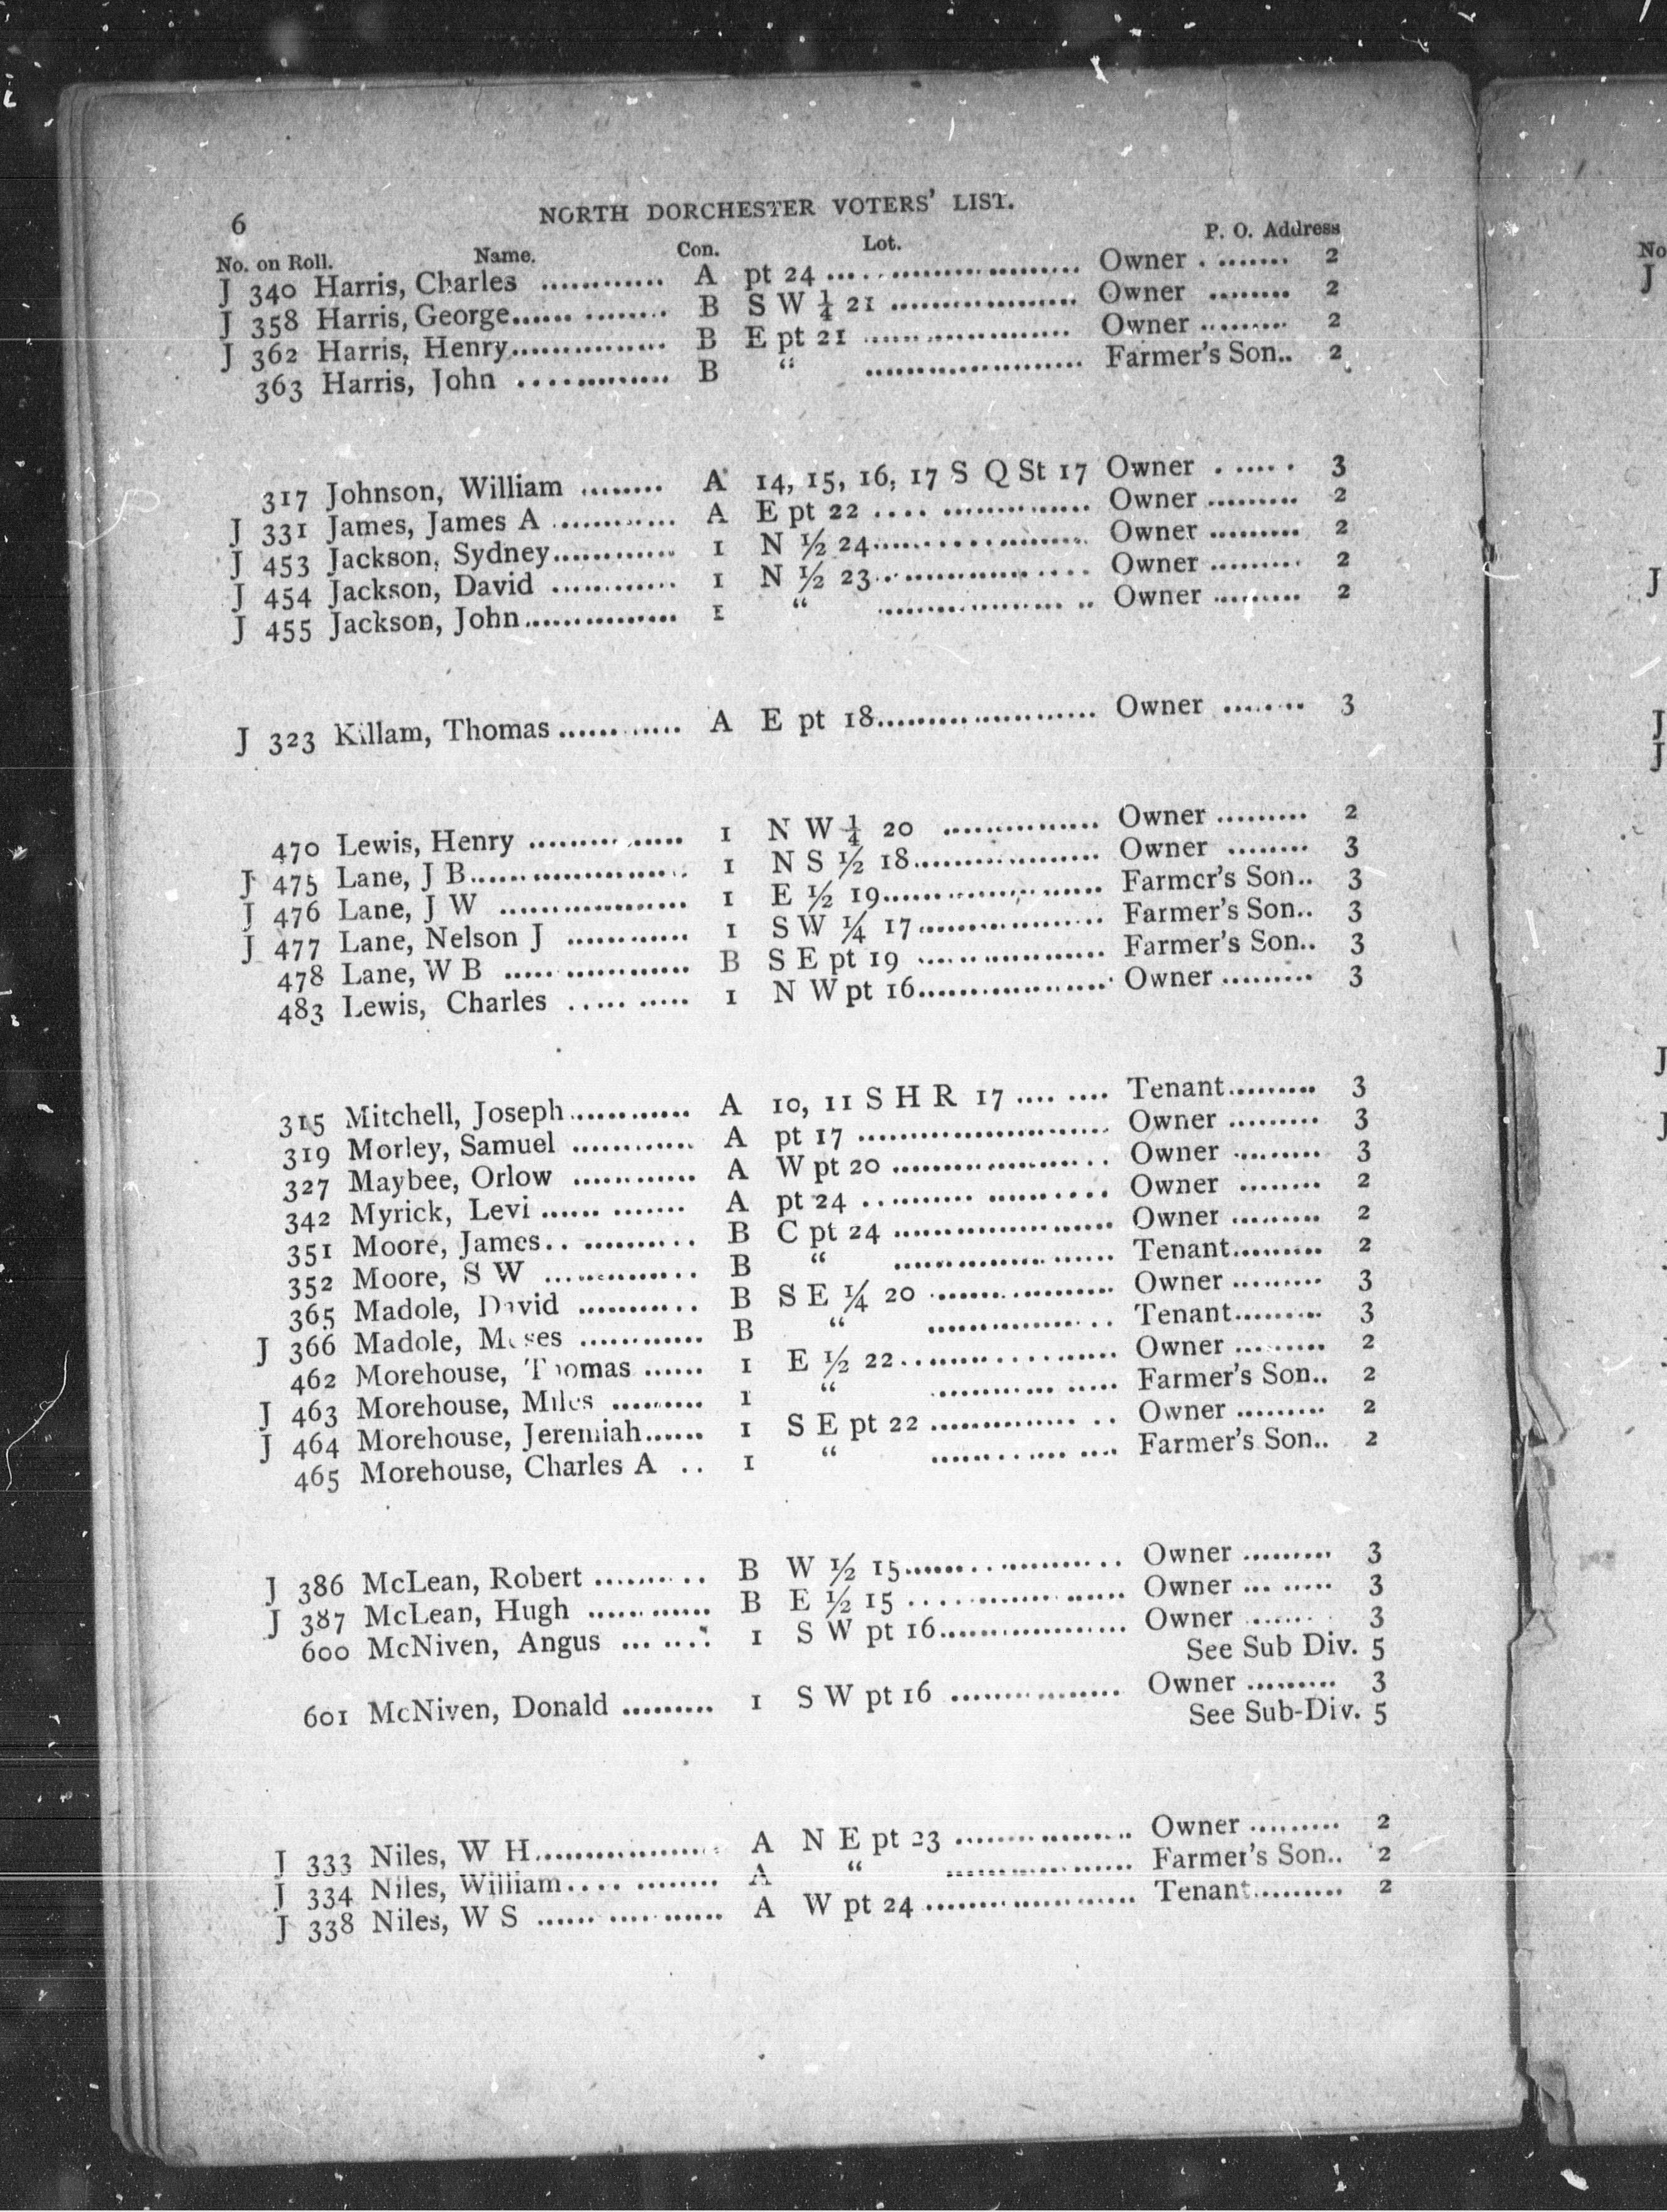 6 NORTH DORCHESTER VOTERS' LIST.
No. on Roll. Name. Con. Lot. P. O. Address
J 340 Harris, Charles ............ A pt 24 ........................ Owner ......... 2
J 358 Harris, George.............. B S W ¼ 21 ................... Owner ........ 2
J 362 Harris, Henry............... B E pt 21 ..................... Owner ......... 2
363 Harris, John .............. B “ ...................... Farmer's Son.. 2
317 Johnson, William ........ A 14, 15, 16, 17 S Q St 17 Owner ...... 3
J 331 James, James A ............ A E pt 22 .................. Owner ......... 2
J 453 Jackson, Sydney............ 1 N ½ 24...................... Owner ......... 2
J 454 Jackson, David ............ 1 N ½ 23..................... Owner ......... 2
J 455 Jackson, John............... 1 “ .................... Owner ......... 2
J 323 Killam, Thomas............ A E pt 18...................... Owner ........ 3
470 Lewis, Henry ............... 1 N W ¼ 20 ............... Owner ......... 2
J 475 Lane, J B..................... 1 N S ½ 18................... Owner ........ 3
J 476 Lane, J W .................. 1 E ½ 19...................... Farmer's Son.. 3
J 477 Lane, Nelson J ............ 1 S W ¼ 17.................. Farmer's Son.. 3
478 Lane, W B .................. B S E pt 19 .................. Farmer's Son.. 3
483 Lewis, Charles .......... 1 N W pt 16................... Owner ......... 3
315 Mitchell, Joseph............ A 10, 11 S H R 17 ........ Tenant......... 3
319 Morley, Samuel ............ A pt 17 ......................... Owner ......... 3
327 Maybee, Orlow ............ A W pt 20 ..................... Owner ......... 3
342 Myrick, Levi ............. A pt 24 ...................... Owner ........ 2
351 Moore, James............ B C pt 24 ...................... Owner ......... 2
352 Moore, S W .............. B “ ..................... Tenant......... 2
365 Madole, David ........... B S E ¼ 20 .................. Owner ......... 3
J 366 Madole, Moses ............ B “ .................. Tenant......... 3
462 Morehouse, Thomas ...... 1 E ½ 22..................... Owner ......... 2
J 463 Morehouse, Miles ......... 1 “ ................. Farmer's Son.. 2
J 464 Morehouse, Jeremiah...... 1 S E pt 22 ................ Owner ......... 2
465 Morehouse, Charles A .. 1 “ ................ Farmer's Son.. 2
J 386 McLean, Robert .......... B W ½ 15..................... Owner ......... 3
J 387 McLean, Hugh ............ B E ½ 15 ..................... Owner ........ 3
600 McNiven, Angus ....... 1 S W pt 16.................. Owner ........ 3
See Sub Div. 5
601 McNiven, Donald ......... 1 S W pt 16 ................ Owner ......... 3
See Sub-Div. 5
J 333 Niles, W H.................. A N E pt 23 .................. Owner ......... 2
J 334 Niles, William............ A “ ................... Farmer's Son.. 2
J 338 Niles, W S .................. A W pt 24 ..................... Tenant......... 2
No
J
J
J
J
J
J